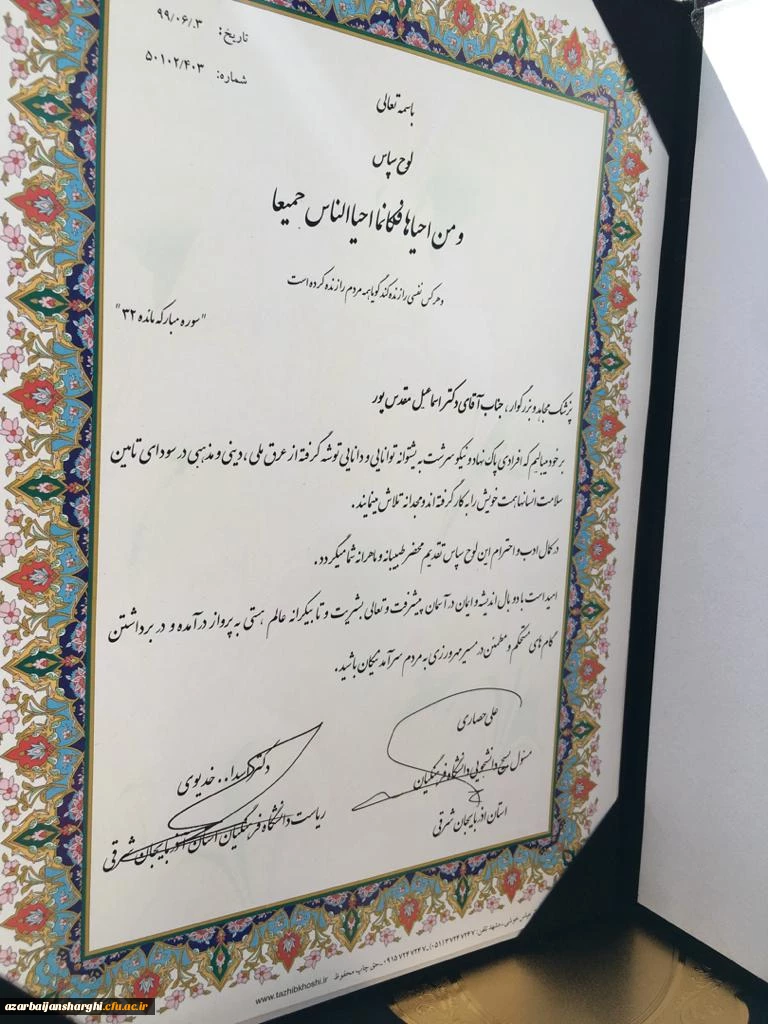 تاریخ: ۹۹/۰۶/۰۳
شماره: ۵۰۱۰۲/۴۰۳
باسمه تعالی
لوح سپاس
و من احیاها فکانما احیا الناس جمیعا
و هر کس نفسی را زنده کند گویا همه مردم را زنده کرده است
"سوره مبارکه مائده ۳۲"
پزشک مجاهد و بزرگوار، جناب آقای دکتر اسماعیل مقدس پور
بر خود میبالیم که افرادی پاک نهاد و نیکو سرشت به پشتوانه توانایی و دانایی توشه گرفته از عرق ملی، دینی و مذهبی در سودای تامین
سلامت انسانها همت خویش را به کار گرفته اند و مجدانه تلاش مینمایند.
در کمال ادب و احترام این لوح سپاس تقدیم محضر طبیبانه و ماهرانه شما میگردد.
امید است با دو بال اندیشه و ایمان در آسمان پیشرفت و تعالی بشریت و تا بیکرانه عالم هستی به پرواز درآمده و در برداشتن
گام های مستحکم و مطمئن در مسیر مهرورزی به مردم سرآمد همگان باشید.
علی حصاری
مسئول بسیج دانشجویی دانشگاه فرهنگیان
استان آذربایجان شرقی
دکتر اسدا.. خدیوی
ریاست دانشگاه فرهنگیان استان آذربایجان شرقی
خوشی، مشهد تلفن: ۳۷۲۴۷۲۴۷ (۰۵۱) - ۰۹۱۵۷۲۴۷۲۴۷ - حق چاپ محفوظ www.tazhibkhoshi.ir
azarbaijansharghi.cfu.ac.ir